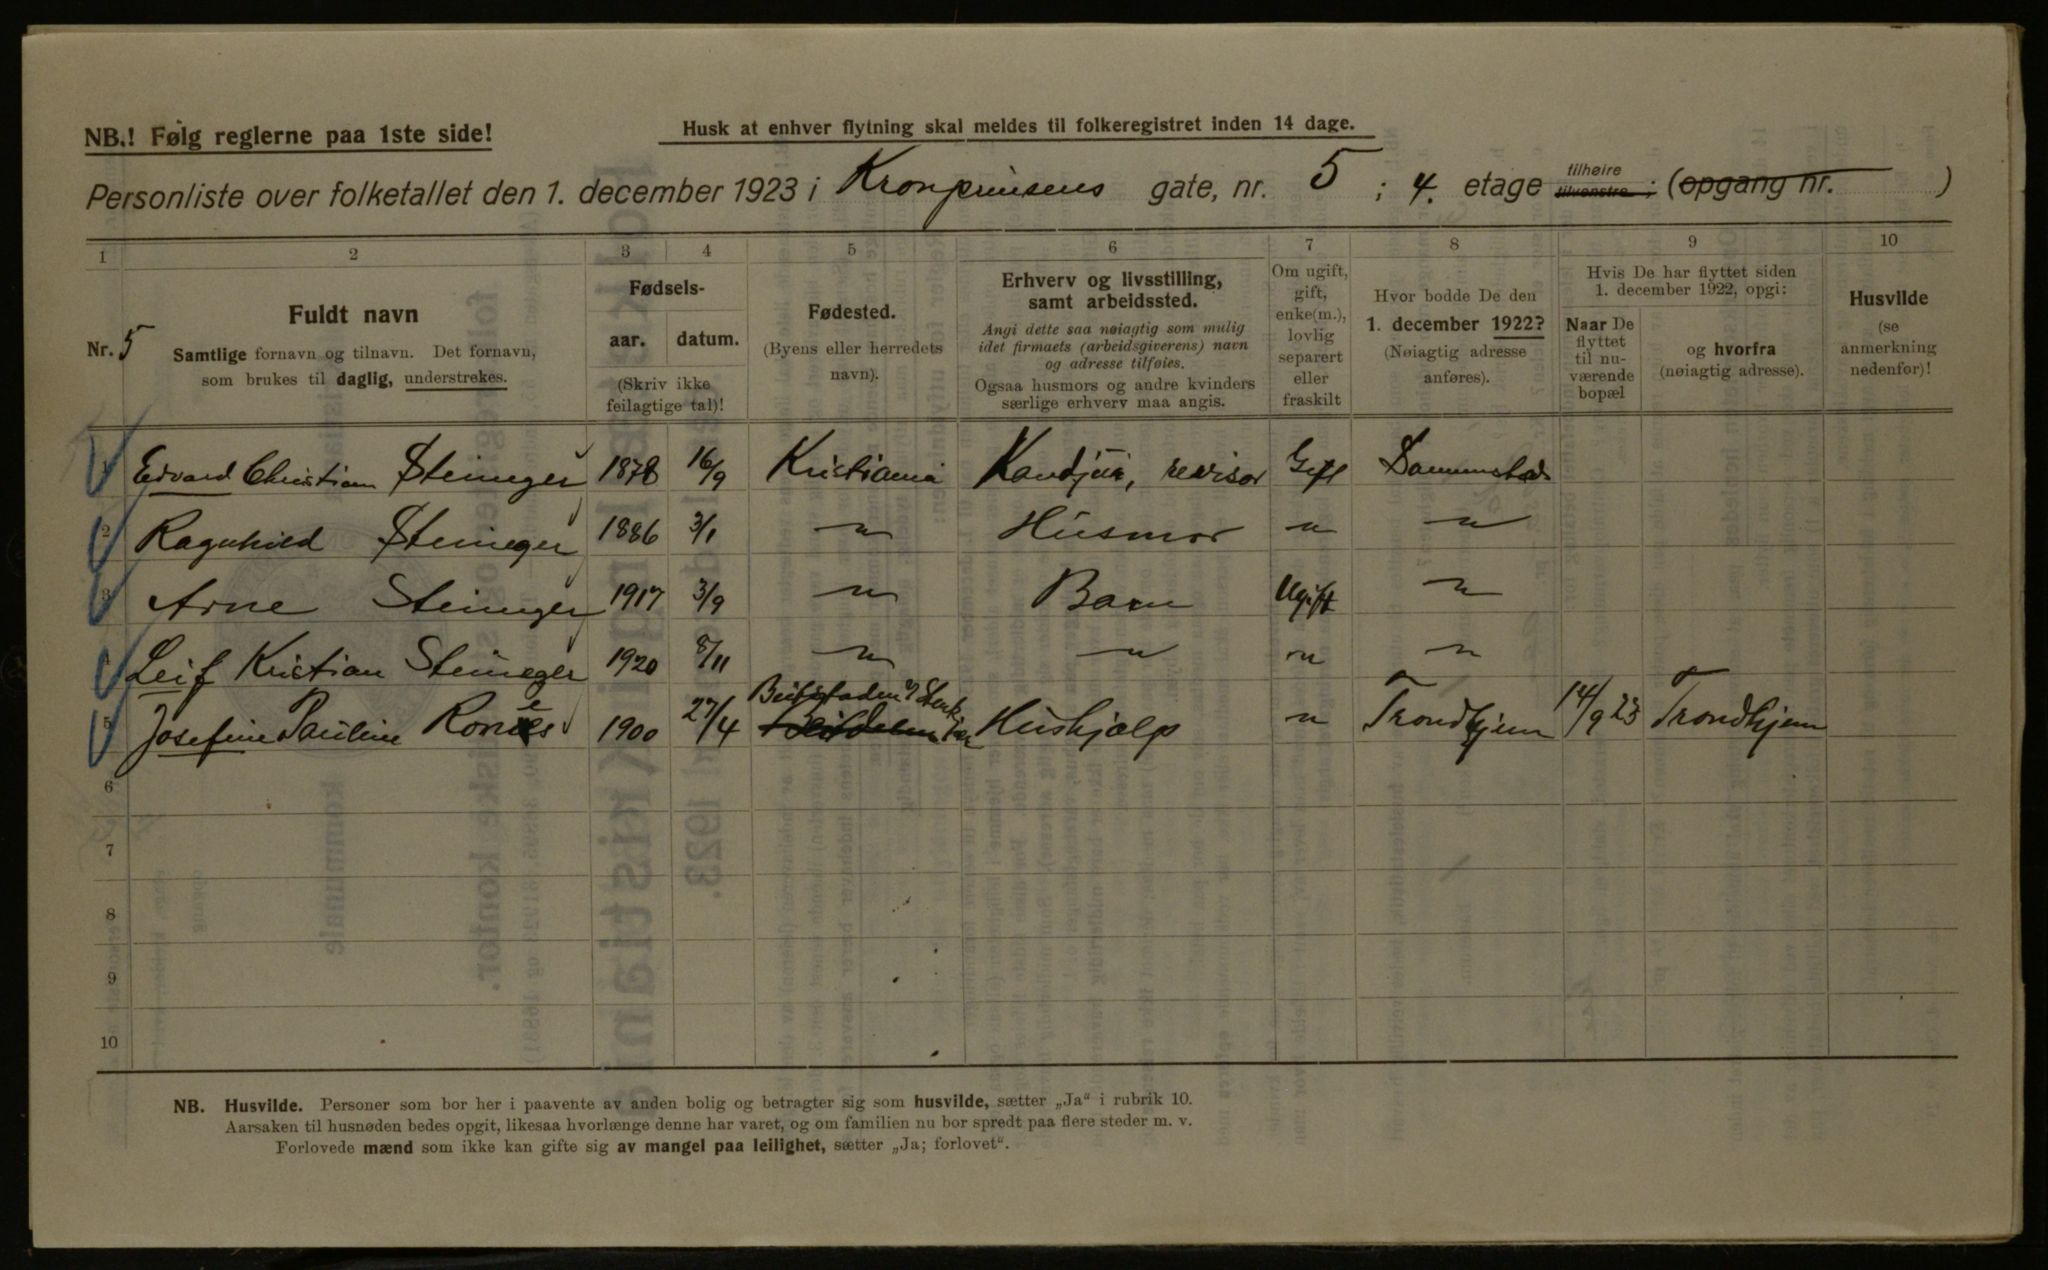 NB.! Følg reglerne paa 1ste side!
Husk at enhver flytning skal meldes til folkeregistret inden 14 dage.
Personliste over folketallet den 1. december 1923 i Kronprinsens gate, nr. 5 ; 4. etage tilhøire tilvenstre ; (opgang nr. )
1 2 3 4 5 6 7 8 9 10
Nr. 5
Fuldt navn
Samtlige fornavn og tilnavn. Det fornavn,
som brukes til daglig, understrekes.
Fødsels-
aar. datum.
(Skriv ikke
feilagtige tal)!
Fødested.
(Byens eller herredets
navn).
Erhverv og livsstilling,
samt arbeidssted.
Angi dette saa nøiagtig som mulig
idet firmaets (arbeidsgiverens) navn
og adresse tilføies.
Ogsaa husmors og andre kvinders
særlige erhverv maa angis.
Om ugift,
gift,
enke(m.),
lovlig
separert
eller
fraskilt
Hvor bodde De den
1. december 1922?
(Nøiagtig adresse
anføres).
Hvis De har flyttet siden
1. december 1922, opgi:
Naar De
flyttet
til nu-
værende
bopæl
og hvorfra
(nøiagtig adresse).
Husvilde
(se
anmerkning
nedenfor)!
1 Edvard Christian Steineger 1878 16/9 Kristiania Kandjur, revisor Gift Sammested
2 Ragnhild Steineger 1886 3/1 " Husmor " "
3 Arne Steineger 1917 3/9 " Barn Ugift "
4 Leif Kristian Steineger 1920 8/11 " " " "
5 Josefine Paulino Rones 1900 27/4 Beitstaden Hushjælp " Trondhjem 14/9 23 Trondhjem
6
7
8
9
10
NB. Husvilde. Personer som bor her i paavente av anden bolig og betragter sig som husvilde, sætter „Ja“ i rubrik 10.
Aarsaken til husnøden bedes opgit, likesaa hvorlænge denne har varet, og om familien nu bor spredt paa flere steder m. v.
Forlovede mænd som ikke kan gifte sig av mangel paa leilighet, sætter „Ja; forlovet“.